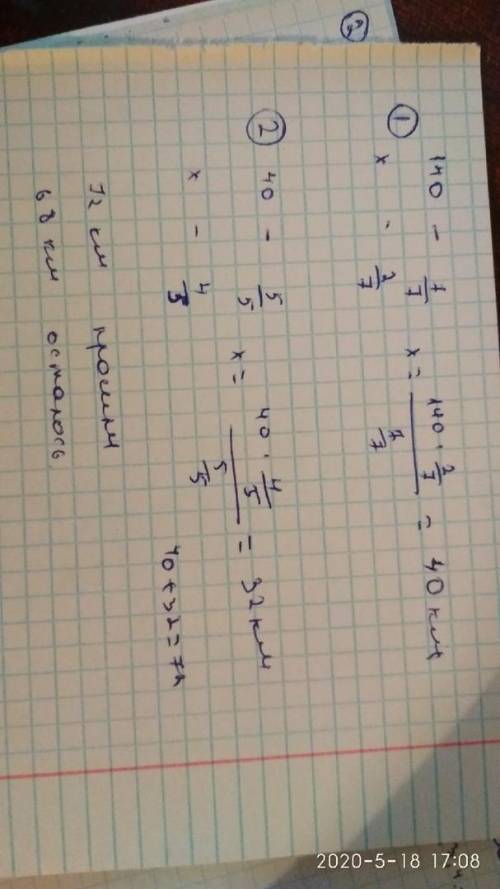 ① 140 — 7/7
x - 2/7
x = (140 · 2/7) / (7/7) = 40 км
② 40 - 5/5
x - 4/5
x = (40 · 4/5) / (5/5) = 32 км
40 + 32 = 72
72 км прошли
68 км осталось
2020-5-18 17:08